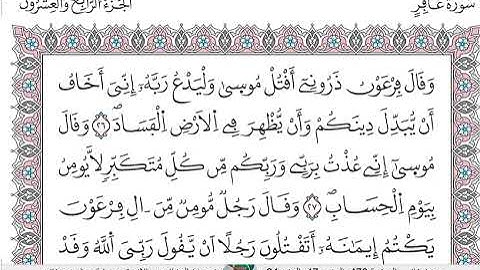 سُورَةُ غَافِرٍ
الجُزْءُ الرَّابِعُ وَالْعِشْرُونَ
وَقَالَ فِرْعَوْنُ ذَرُونِيَ أَقْتُلْ مُوسىٰ وَلْيَدْعُ رَبَّهُۥٓ إِنِّيَ أَخَافُ
أَنْ يُّبَدِّلَ دِينَكُمْ وَأَنْ يُّظْهِرَ فِے اِ۬لَارْضِ اِ۬لْفَسَادَۖ ٢٦ وَقَالَ
مُوسىٰٓ إِنِّے عُذْتُ بِرَبِّے وَرَبِّكُم مِّن كُلِّ مُتَكَبِّرٖ لَّا يُومِنُ
بِيَوْمِ اِ۬لْحِسَابِۖ ٢٧ وَقَالَ رَجُلٞ مُّومِنٞ مِّنَ اٰلِ فِرْعَوْنَ
يَكْتُمُ إِيمَٰنَهُۥٓ أَتَقْتُلُونَ رَجُلًا اَنْ يَّقُولَ رَبِّيَ اَ۬للَّهُ وَقَدْ